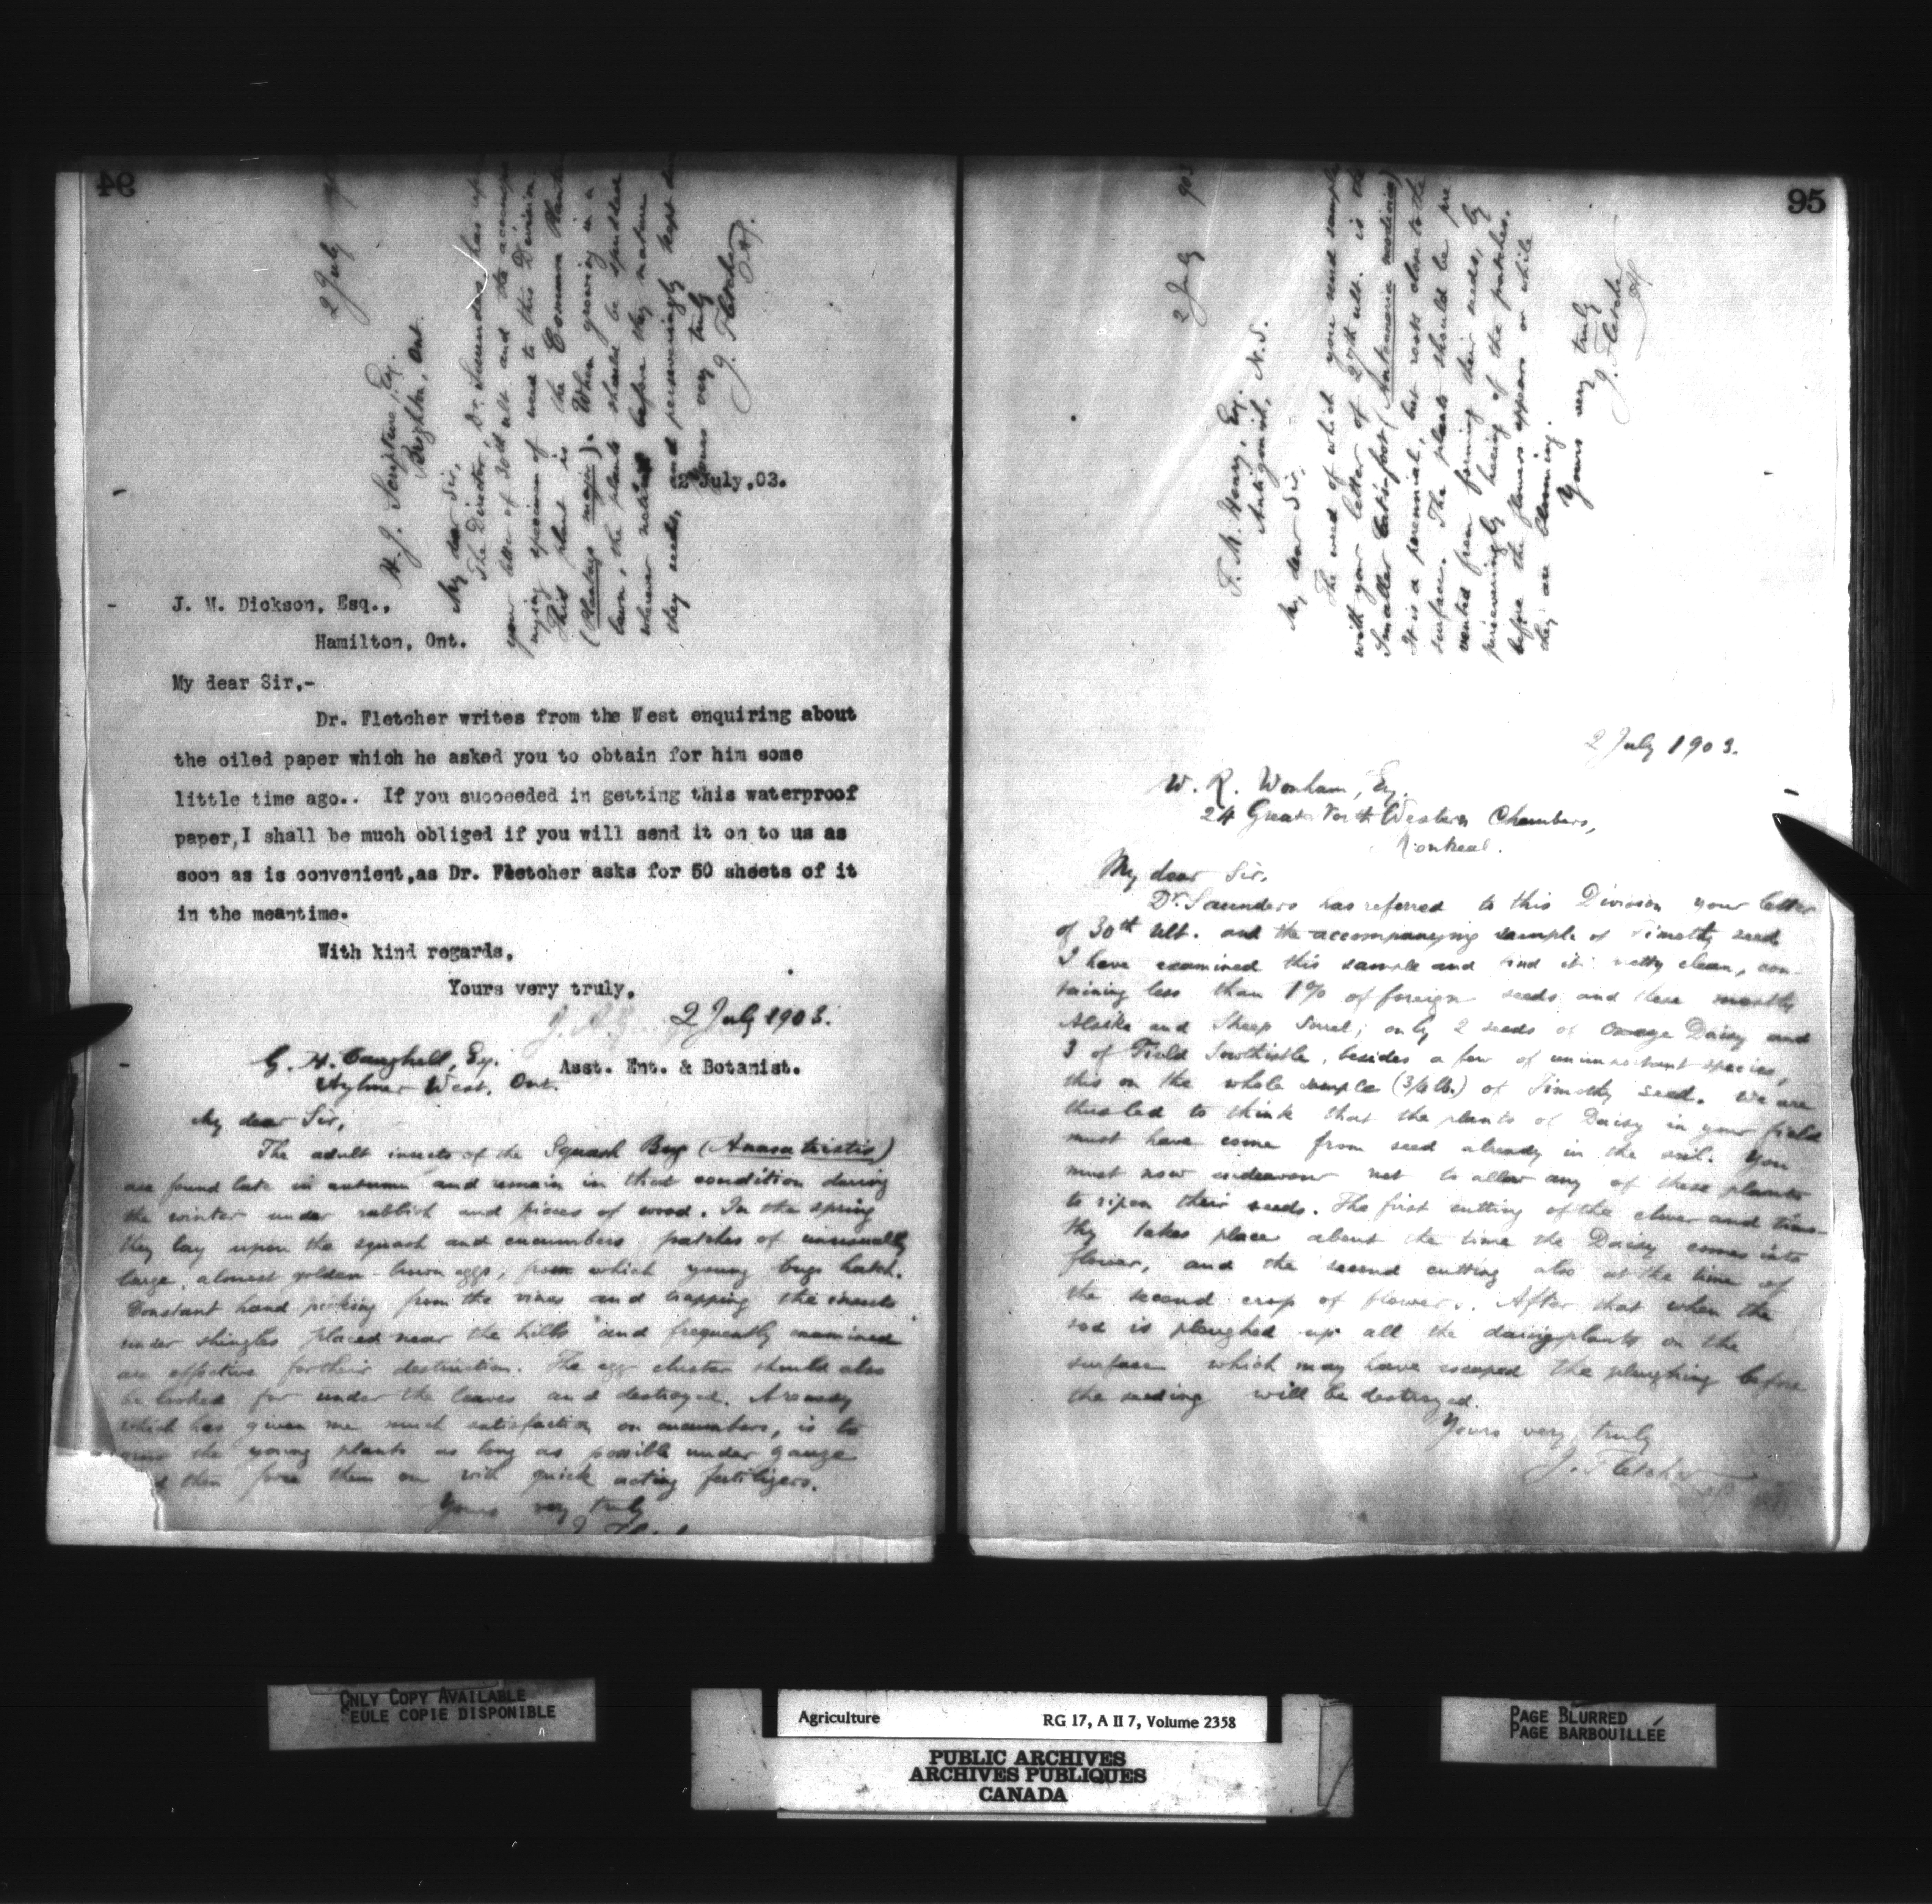 94
2 July
H. J. Scripture, Esq.
Brighton, Ont.
My dear Sir,
The Director, Dr. Saunders, has
your letter of 30th ult. and the
nying specimen of weed to this Division.
This plant is the Common
(Plantago major). When growing in a
lawn, the plants should be spudded
wherever noticed before they mature
their seeds, and perseveringly kept
Yours very truly
J. Fletcher
2 July,03.
J. M. Dickson, Esq.,
Hamilton, Ont.
My dear Sir,-
Dr. Fletcher writes from the West enquiring about
the oiled paper which he asked you to obtain for him some
little time ago.. If you succeeded in getting this waterproof
paper,I shall be much obliged if you will send it on to us as
soon as is convenient,as Dr. Fletcher asks for 50 sheets of it
in the meantime.
With kind regards,
Yours very truly,
Asst. Ent. & Botanist.
2 July 1903.
G. H. Caughell, Esq.
Aylmer West, Ont.
My dear Sir,
The adult insects of the Squash Bug (Anasa tristis)
are found late in autumn and remain in that condition during
the winter under rubbish and pieces of wood. In the spring
they lay upon the squash and cucumbers patches of unusually
large, almost golden-brown eggs, from which young bugs hatch.
Constant hand-picking from the vines and trapping the insects
under shingles placed near the hills and frequently examined
are effective for their destruction. The egg cluster should also
be looked for under the leaves and destroyed. A remedy
which has given me much satisfaction on cucumbers, is to
the young plants as long as possible under gauze
then force them on with quick acting fertilizers.
Yours very truly
95
2 July 903
F. M. Henry, Esq.
Antigonish, N.S.
My dear Sir,
The weed of which you send sample
with your letter of 27th ult. is the
Smaller Cat's-foot (Antennaria neodioica)
It is a perennial, but roots close to the
surface. The plants should be pre-
vented from forming their seeds, by
perseveringly hoeing of the patches.
before the flowers appear or while
they are blooming.
Yours very truly
J. Fletcher
2 July 1903.
W. R. Wonham, Esq.
24 Great North Western Chambers,
Montreal.
My dear Sir,
Dr. Saunders has referred to this Division your letter
of 30th ult. and the accompanying sample of Timothy seed
I have examined this sample and find it pretty clean, con-
taining less than 1% of foreign seeds and these mostly
Alsike and Sheep Sorrel; only 2 seeds of Oxeye Daisy and
3 of Field Sowthistle, besides a few of unimportant species,
this on the whole sample (3/4 lb.) of Timothy seed. We are
thus led to think that the plants of Daisy in your field
must have come from seed already in the soil. You
must now endeavour not to allow any of these plants
to ripen their seeds. The first cutting of the clover and timo-
thy takes place about the time the Daisy comes into
flower, and the second cutting also at the time of
the second crop of flowers. After that when the
sod is ploughed up all the daisy plants on the
surface which may have escaped the ploughing before
the seeding will be destroyed.
Yours very truly
J. Fletcher
ONLY COPY AVAILABLE
SEULE COPIE DISPONIBLE
Agriculture RG 17, A II 7, Volume 2358
PUBLIC ARCHIVES
ARCHIVES PUBLIQUES
CANADA
PAGE BLURRED
PAGE BARBOUILLÉE